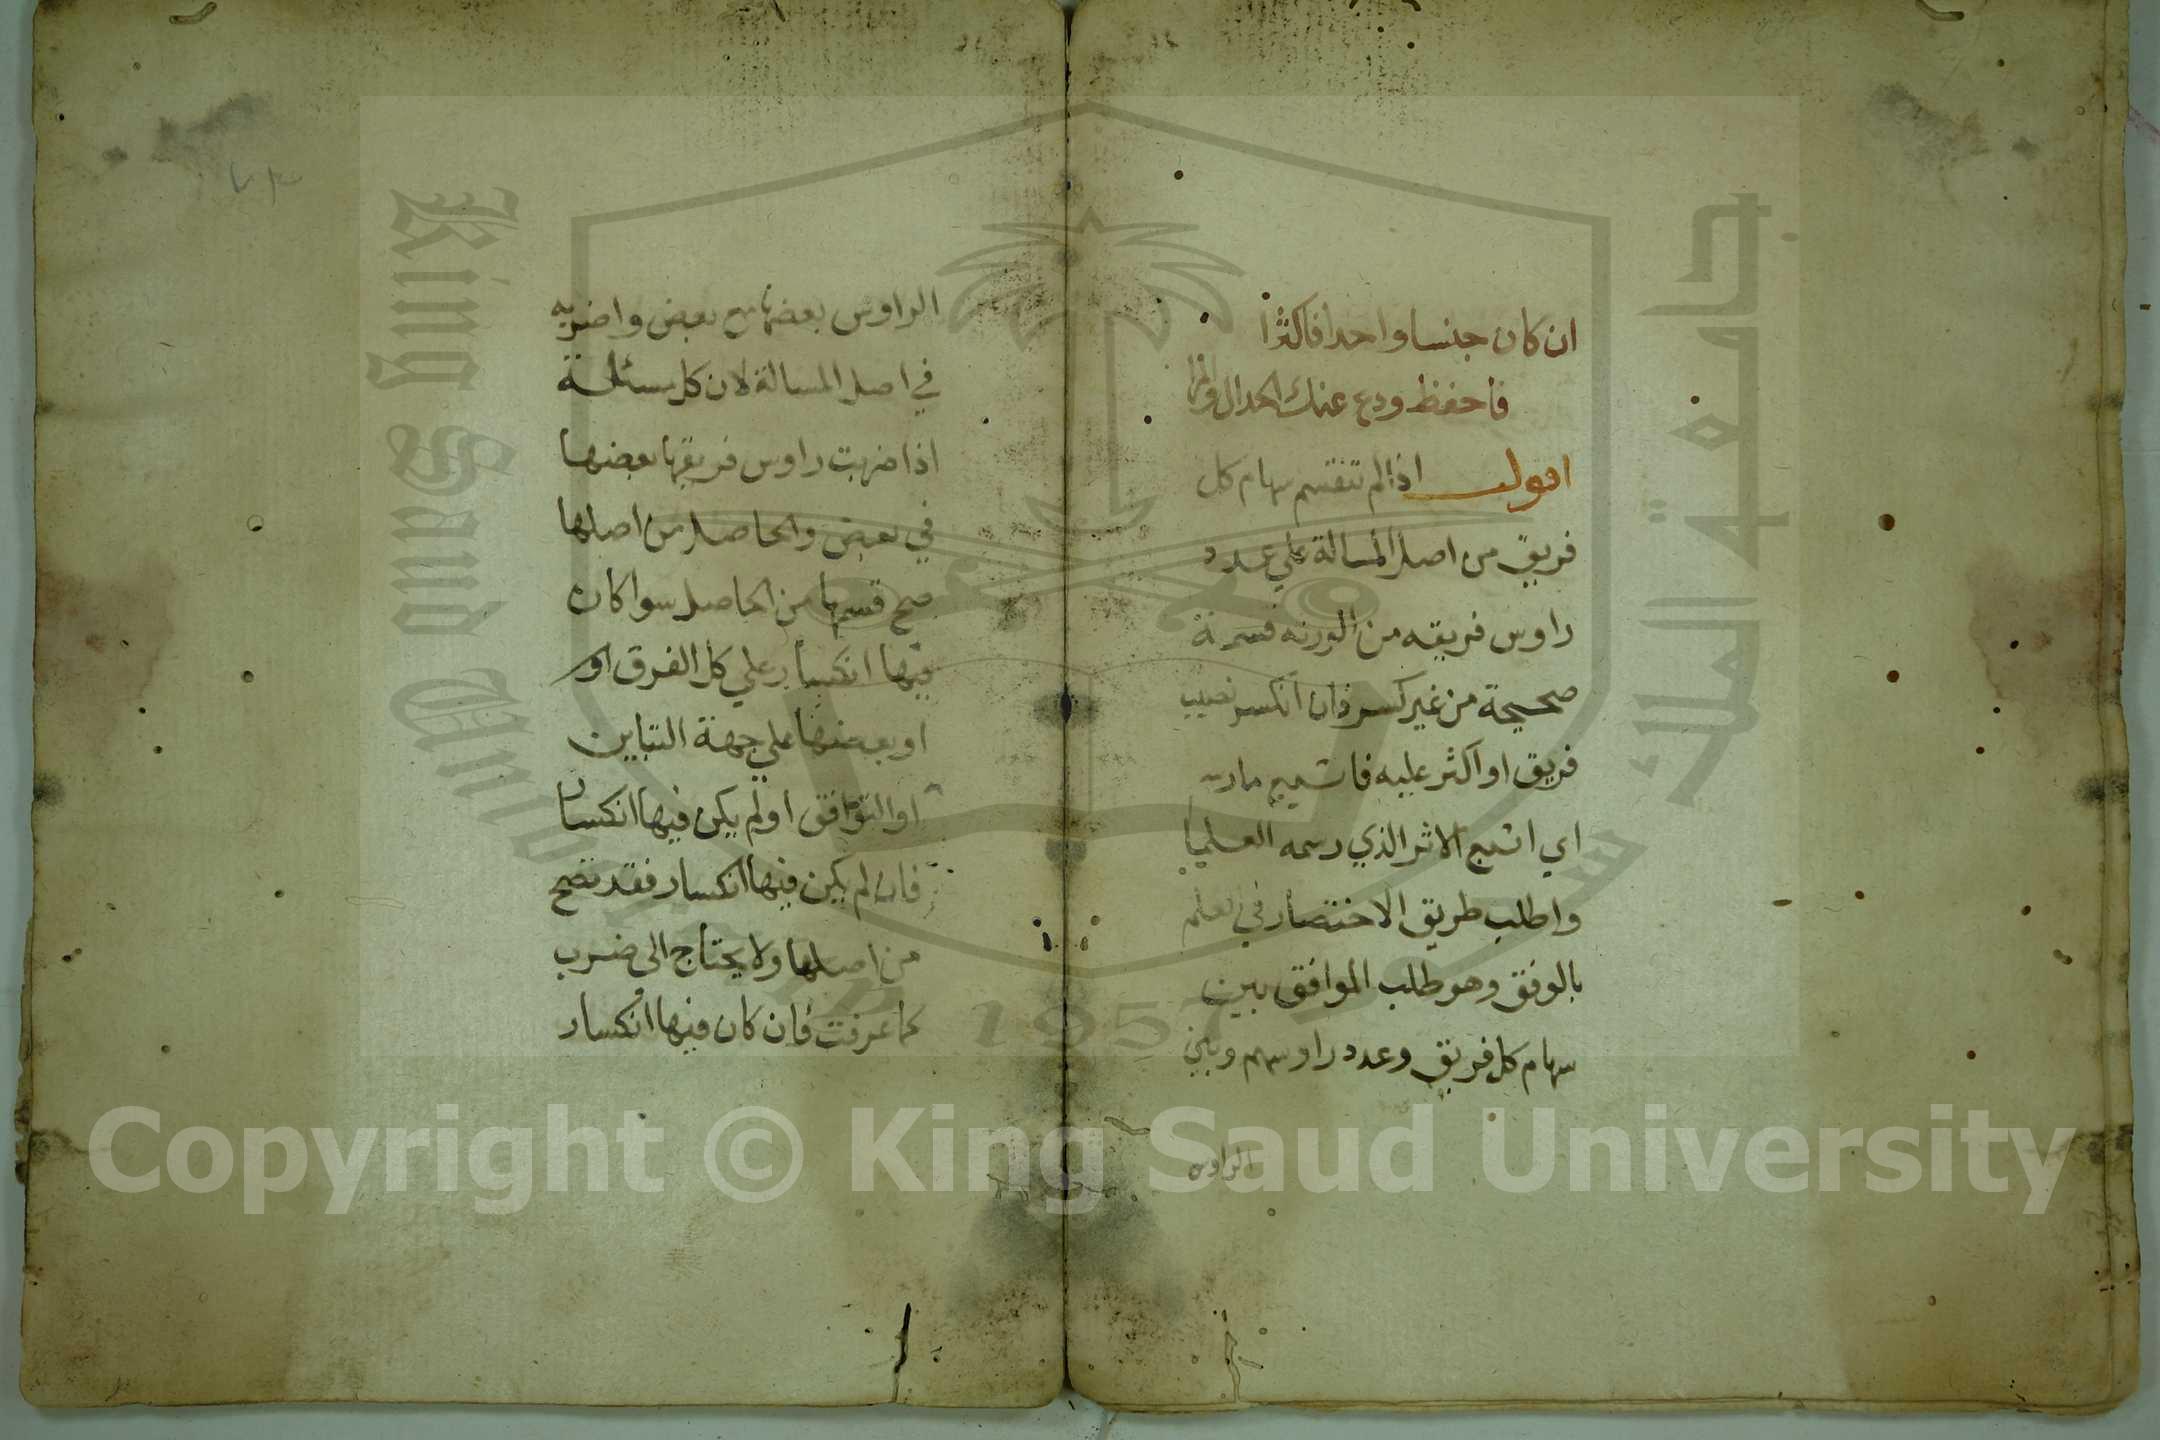 ان كان جنسا واحدا فاكثرا
فاحفظ ودع عنك الجدال والمرا
اقول اذا لم تنقسم سهام كل
فريق من اصل المسالة علي عدد
راوس فريقه من الورثه قسمة
صحيحة من غير كسر فان انكسر نصيب
فريق او اكثر عليه فاتبع مارسم
اي اتبع الاثر الذي رسمه العلما
واطلب طريق الاختصار في العلم
بالوفق وهو طلب الموافق بين
سهام كل فريق وعدد راوسهم وبين
الراوس
الراوس بعضها مع بعض واضربه
في اصل المسالة لان كل مسئلة
اذا ضربت راوس فريقها بعضها
في بعض والحاصل من اصلها
صح قسمها من الحاصل سوا كان
فيها انكسار علي كل الفرق او
او بعضها علي جهة التباين
او التوافق او لم يكن فيها انكسار
فان لم يكين فيها انكسار فقد تصح
من اصلها ولا يحتاج الى ضرب
كما عرفت فان كان فيها انكسار
جامعة الملك سعود
King Saud University
1957
Copyright © King Saud University